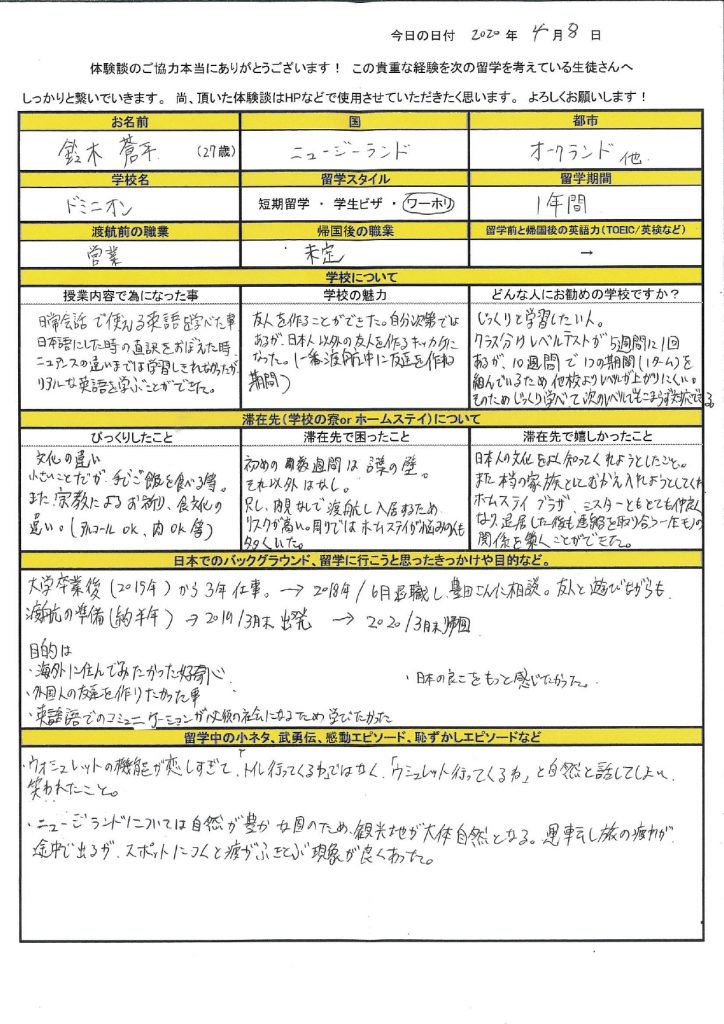 今日の日付 2020 年 4 月 8 日
体験談のご協力本当にありがとうございます！ この貴重な経験を次の留学を考えている生徒さんへ
しっかりと繋いでいきます。 尚、頂いた体験談はHPなどで使用させていただきたく思います。 よろしくお願いします！
お名前 国 都市
鈴木 蒼平 (27歳) ニュージーランド オークランド 他
学校名 留学スタイル 留学期間
ドミニオン 短期留学 ・ 学生ビザ ・ ワーホリ 1年間
渡航前の職業 帰国後の職業 留学前と帰国後の英語力(TOEIC/英検など)
営業 未定 →
学校について
授業内容で為になった事 学校の魅力 どんな人にお勧めの学校ですか？
日常会話で使える英語を学べた事
日本語にした時の直訳をおぼえた時、
ニュアンスの違いまでは学習しきれなかったが
リアルな英語を学ぶことができた。
友人を作ることができた。自分次第では
あるが、日本人以外の友人を作るキッカケに
なった。(一番渡航中に友達を作れる
期間)
じっくりと学習したい人。
クラス分けレベルテストが5週間に1回
あるが、10週間で1つの期間(1ターム)を
組んでいるため他校よりレベルが上がりにくい。
そのためじっくり学べて次のレベルでもこまらず対応できる
滞在先(学校の寮or ホームステイ)について
びっくりしたこと 滞在先で困ったこと 滞在先で嬉しかったこと
文化の違い
小さいことだが、手でご飯を食べる等。
また、宗教によるお祈り、食文化の
違い。(アルコールOK、肉OK等)
初めの数週間は言葉の壁。
それ以外はなし。
只し、内見なしで渡航し入居するため
リスクが高い。周りではホームステイが悩みの人も
多くいた。
日本人の文化をよく知ってくれようとしたこと。
また本当の家族としてむかえ入れようとしてくれ
ホームステイブラザー、ミスターともとても仲良く
なり、退居した後も連絡を取り合う
関係を築くことができた。
日本でのバックグラウンド、留学に行こうと思ったきっかけや目的など。
大学卒業後(2015年)から3年仕事。→2018年/6月退職し豊田さんに相談。友人と遊びながらも
渡航の準備(約半年) →2019/3月末出発 → 2020/3月末帰国
目的は
・海外に住んでみたかった好奇心 ・日本の良さをもっと感じたかった。
・外国人の友達を作りたかった事
・英語でのコミュニケーションが必須の社会になるため学びたかった
留学中の小ネタ、武勇伝、感動エピソード、恥ずかしエピソードなど
・ウォシュレットの機能が恋しすぎて、「トイレ行ってくるわ」ではなく、「ウォシュレット行ってくるね」と自然と話してしまい、
笑われたこと。
・ニュージランドについては自然が豊かな国のため、観光地が大体自然となる。運転し旅の疲れが
途中で出るが、スポットにつくと疲がふきとぶ現象が良くあった。